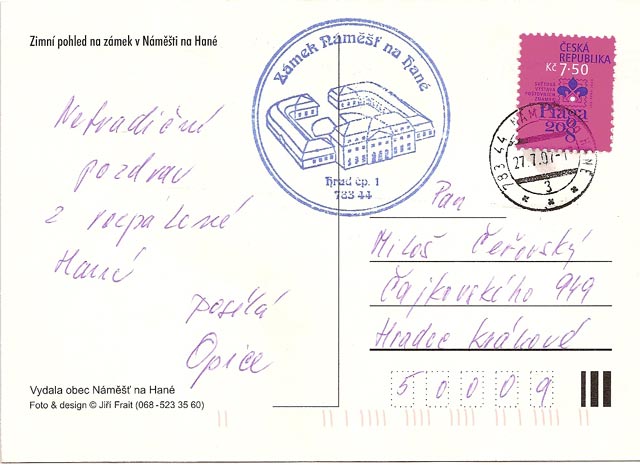 Zimní pohled na zámek v Náměšti na Hané
Zámek Náměšť na Hané
Hrad čp. 1
783 44
ČESKÁ
REPUBLIKA
Kč 7·50
SVĚTOVÁ
VÝSTAVA
POŠTOVNÍCH
ZNÁMEK
Praga
2008
783 44 NÁMĚŠŤ NA HANÉ
27.7.07-1
3
Netradiční
pozdrav
z rozpálené
Hané
posílá
Opice
Pan
Miloš Čeřovský
Čajkovského 949
Hradec Králové
50009
Vydala obec Náměšť na Hané
Foto & design © Jiří Frait (068-523 35 60)